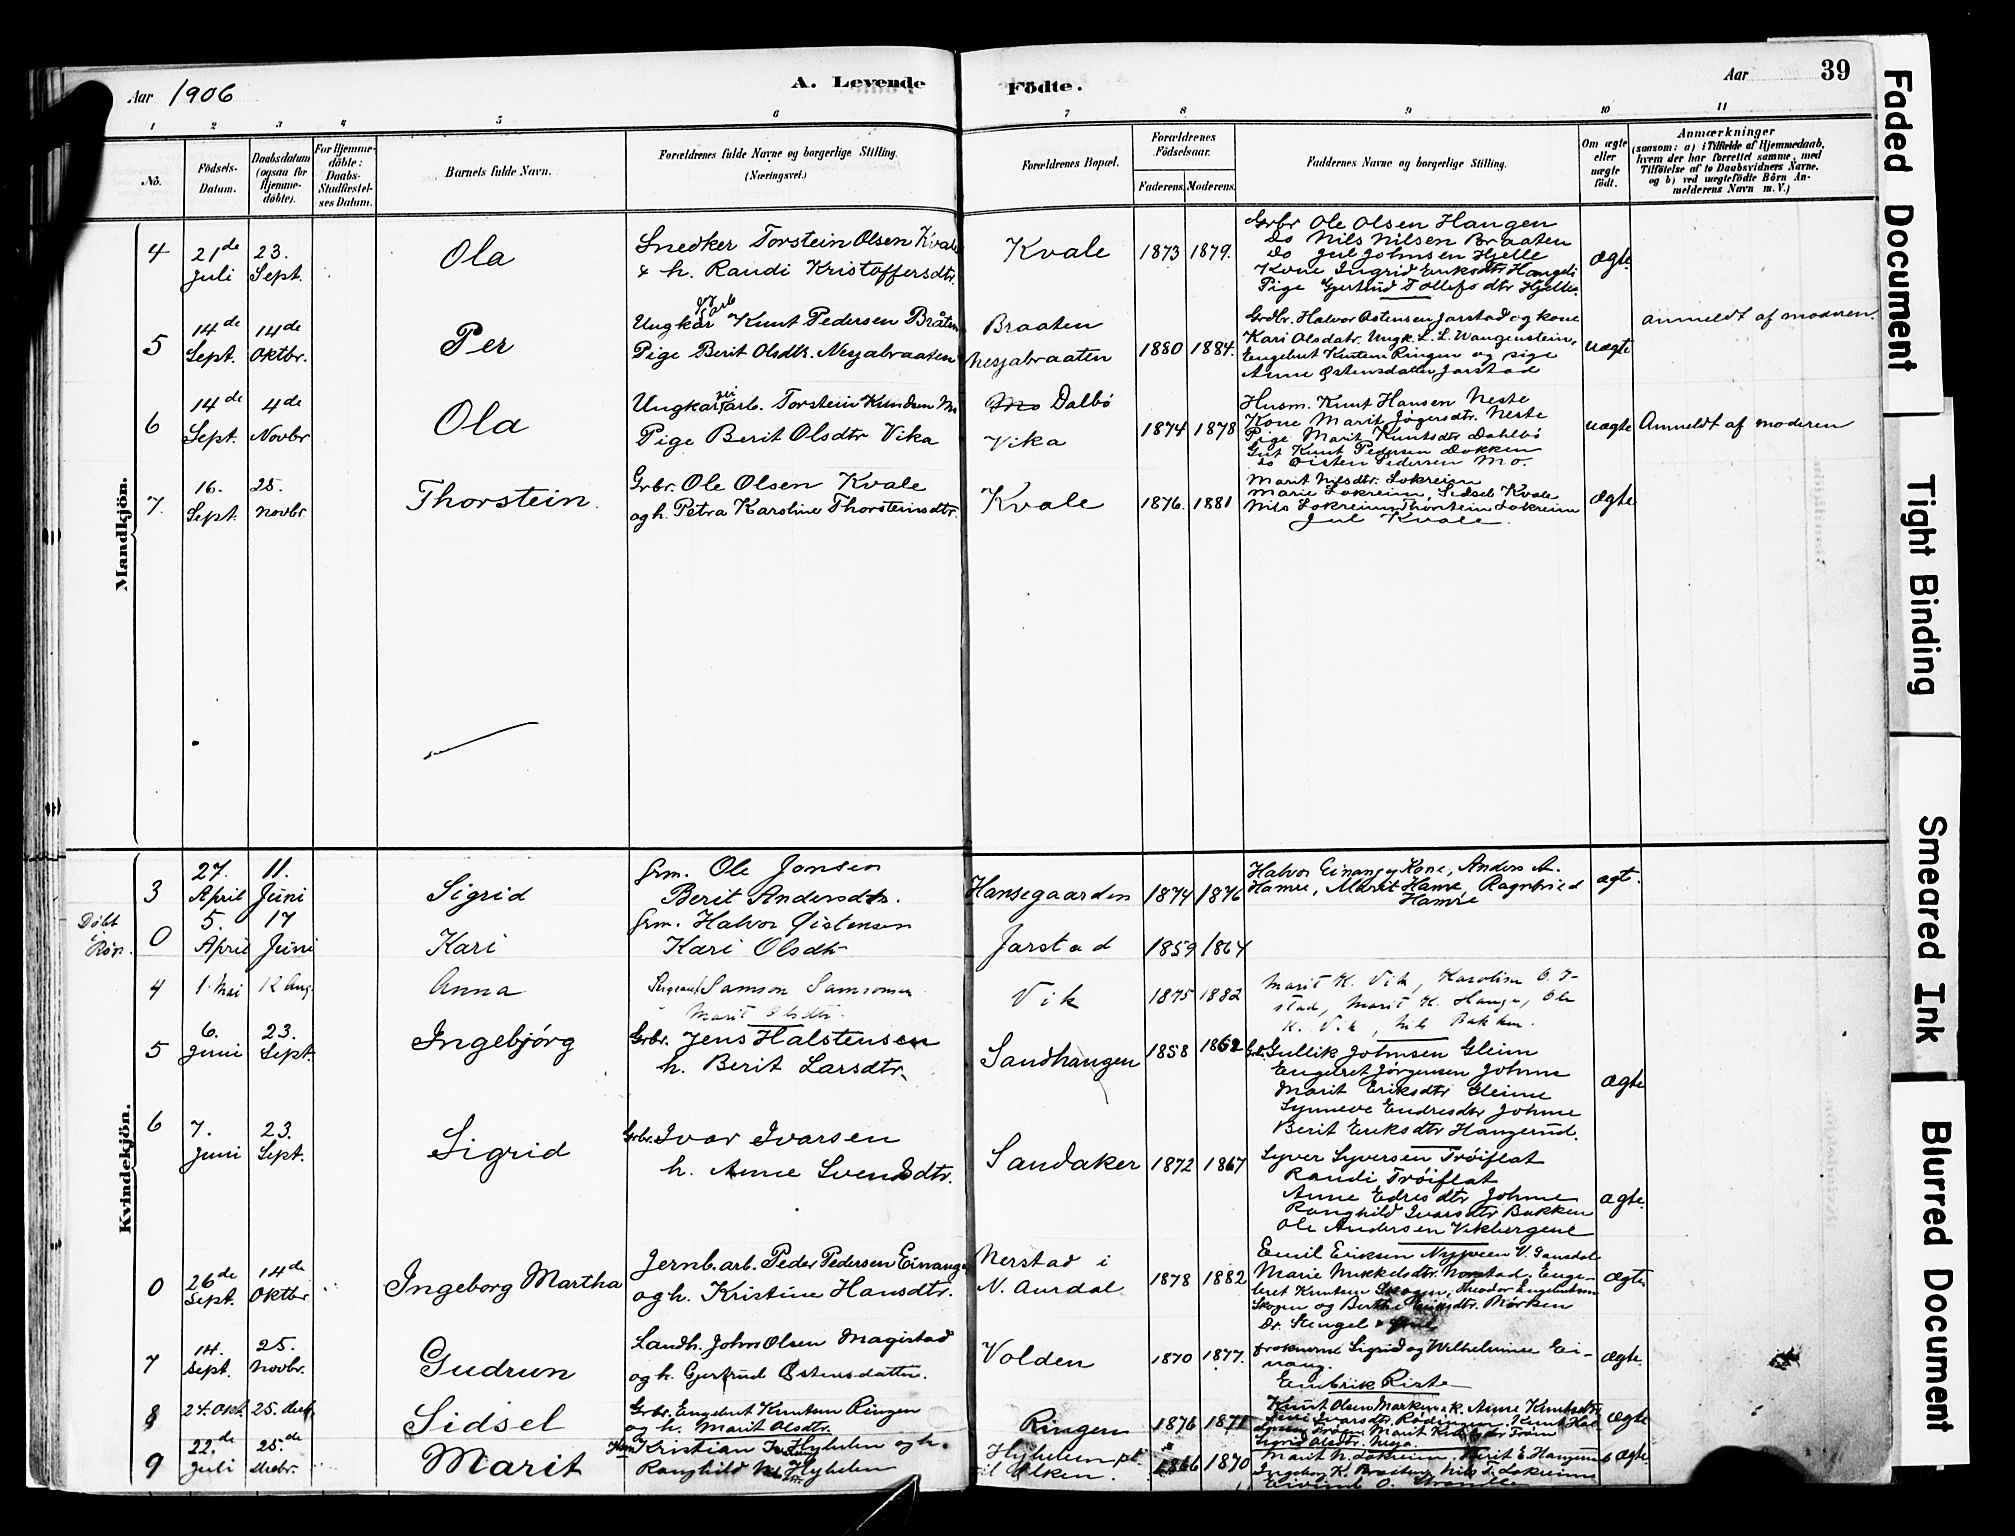 Aar 1906
A. Levende
Födte.
Aar
39
1 2 3 4 5 6 7 8 9 10 11
No.
Födsels-
Datum.
Daabsdatum
(ogsaa for
Hjemme-
døbte).
For Hjemme-
døbte:
Daabs-
Stadfæstel-
ses Datum.
Barnets fulde Navn.
Forældrenes fulde Navne og borgerlige Stilling.
(Næringsvei.)
Forældrenes Bopæl.
Forældrenes
Fødselsaar.
Faderens.
Moderens.
Faddernes Navne og borgerlige Stilling.
Om ægte
eller
uægte
født.
Anmærkninger
(saasom: a) i Tilfælde af Hjemmedaab,
hvem der har forrettet samme, med
Tilføielse af to Daabsvidners Navne.
og b) ved uægtefødte Börn An-
melderens Navn m. V.)
Mandkjön.
4
21de
Juli
23.
Sept.
Ola
Snedker Torstein Olsen Kvale
& h. Randi Kristoffersdtr.
Kvale
1873
1879.
Grbr Ole Olsen Haugen
Do Nils Nilsen Braaten
Do Jul Johnsen Hjelle
Kone Ingrid Eriksdtr Haugen
Pige Gjertrud Tollefsdtr Hjelle.
ægte.
5
14de
Sept.
14de
Oktbr.
Per
Ungkar Knut Pedersen Bråten
Pige Berit Olsdtr. Nesjabraaten
Braaten
Nesjabraaten
1880
1884.
Grdbr. Halvor Østensen Jarstad og kone
Kari Olsdatr. Ungk. L. L. Wangenstein,
Engebret Knutsen Ringen og pige
Anne Østensdatter Jarstad
uægte
anmeldt af moderen.
6
14de
Sept.
4de
Novbr
Ola
Ungkar, arb. Torstein Knudsen Mo
Pige Berit Olsdtr Vika
Mo Dalbø
Vika
1874
1878
Husm. Knut Hansen Neste
Kone Marit Jøgersdtr. Neste
Pige Marit Knutsdtr Dahlbø
Gut Knut Pedersen Dokken
do Øisten Pedersen Mo.
uægte
Anmeldt af moderen
7.
16.
Sept.
25.
Novbr.
Thorstein.
Grbr. Ole Olsen Kvale
og h. Petra Karoline Thorsteinsdtr.
Kvale
1876.
1881
Marit Nilsdtr. Lokreim
Marie Lokreim, Sidsel Kvale
Nils Lokreim, Thorstein Lokreim
Jul Kvale.
ægte
Kvindekjön.
3
27.
April
11.
Juni
Sigrid
Grm. Ole Jonsen
Berit Andersdtr.
Hansegaarden
1874
1876
Halvor Einang og Kone, Anders A.
Hamre, Marit Hamre, Ragnfried
Hamre
ægt.
Døbt
i
Røn.
0
5.
April
17
Juni
Kari
Grm. Halvor Østensen
Kari Olsdtr
Jarstad
1859
1864
4
1. Mai
12 Aug.
Anna
Sergeant Samson Samsonsen
Marit Olsdtr.
Vik
1875
1882
Marit K. Vik, Karoline O. J-
stad, Marit K. Hauge, Ole
K. Vik, Nils Bakken.
5
6.
Juni
23.
Sept.
Ingebjørg
Grbr. Jens Halstensen
h. Berit Larsdtr.
Sandhaugen
1858
1862
Gullik Johnsen Gleim
Engebret Jørgensen Johme
Marit Eriksdtr Gleime
Synneve Endresdtr Johme
Berit Eriksdtr Haugerud.
ægte
6
7.
Juni
23.
Sept.
Sigrid
Grbr. Ivar Ivarsen
h. Anne Svendsdtr.
Sandaker
1872
1867
Syver Syversen Trøiflat
Randi Trøiflat
Anne Edresdtr Johme
Ranghild Ivarsdtr Bakken
Ole Andersen Vikbergene
ægte.
0
26de
Sept.
14de
Oktbr
Ingeborg Martha
Jernb.arb. Peder Pedersen Einang
og h. Kristine Hansdtr.
Nerstad i
N. Aurdal
1878
1882
Emil Eriksen Nyveen V. Gausdal
Marie Mikkelsdtr. Nerstad, Enge-
bret Knutsen Skogen, Theodor Engebretsen
Skogen og Berthe Eriksdtr. Mørken
Dr. Stengel
ægte
7
14.
Sept.
25.
Novbr.
Gudrun
Landh. John Olsen Magistad
og h. Gjertrud Østensdatter.
Volden
1870
1877.
Frøknerne Sigrid og Wilhelmine Ei-
nang.
Embrik Riste
ægte
8
24. Okt.
25. decb.
Sidsel
Grbr. Engebret Knutsen Ringen
og h. Marit Olsdtr.
Ringen
1876
1871
Knut Olsen Marken & k. Anne Knutsdtr
ægte
9
22.de
Juli
25.de
decbr.
Marit
Kristian Hyhelen og h.
Ranghild Hyhelen
Hyhelen pt.
1866
1870
Marit N. Lokreim, Berit E. Haugerud
Nils T. Lokreim
ægte
Faded Document
Tight Binding
Smeared Ink
Blurred Document